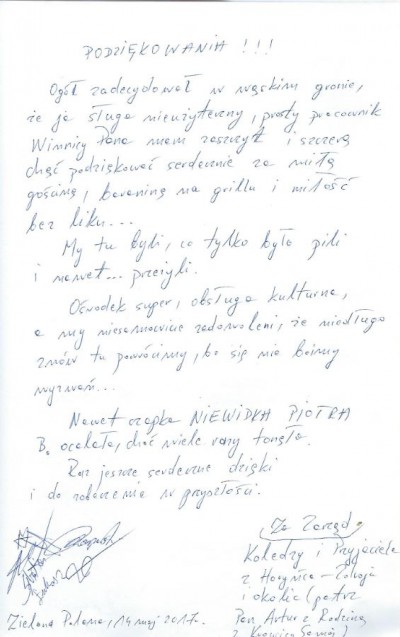 PODZIĘKOWANIA !!!
Ogół zadecydował w wąskim gronie,
że ja sługa nieużyteczny, prosty pracownik
Winnicy Pana mam zaszczyt i szczerą
chęć podziękować serdecznie za miłą
gościnę, baraninę na grillu i miłość
bez liku...
My tu byli, co tylko było pili
i nawet... przeżyli.
Ośrodek super, obsługa kulturna,
a my niesamowicie zadowoleni, że niedługo
znów tu powrócimy, bo się nie boimy
wyzwań...
Nawet czapka NIEWIDKA PIOTRA
B. ocalała, choć wiele razy tonęła.
Raz jeszcze serdeczne dzięki
i do zobaczenia w przyszłości.
Za Zarząd:
Koledzy i Przyjaciele
z Horyńca-Zdroju
i okolic (patrz
Pan Artur z Rodziną
Zielona Polana, 14 maj 2017.